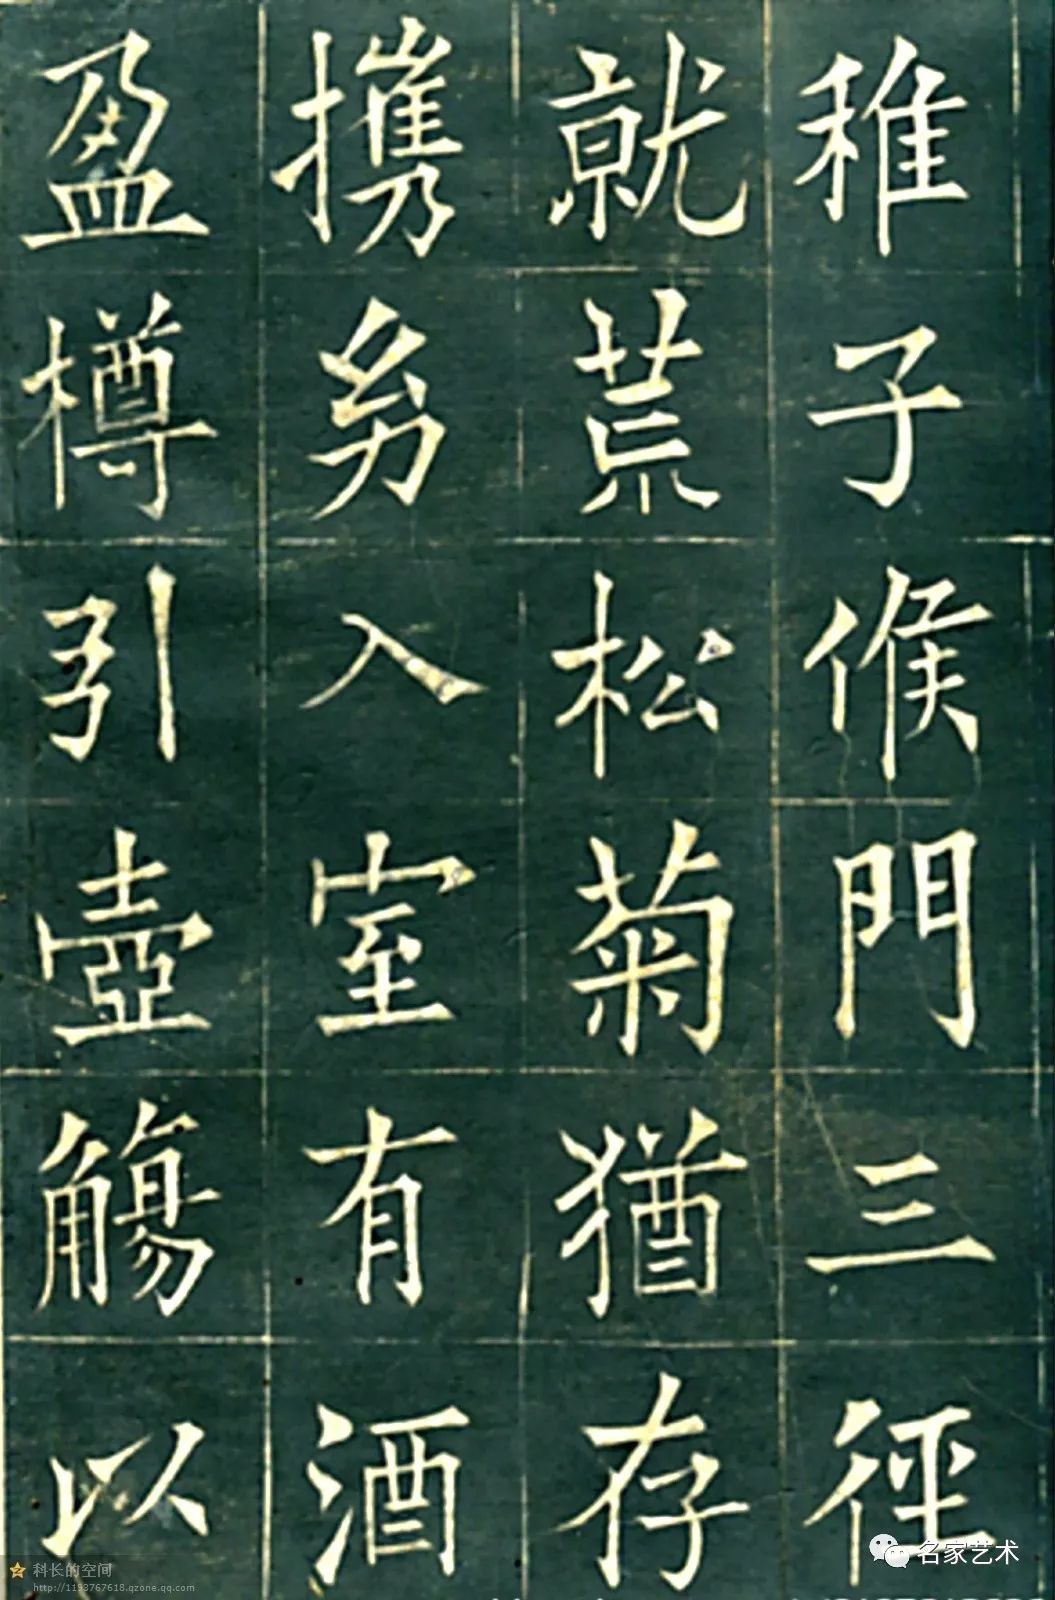 稚子候門三徑
就荒松菊猶存
携㓜入室有酒
盈樽引壺觴以
名家艺术
科长的空间
http://1193767618.qzone.qq.com